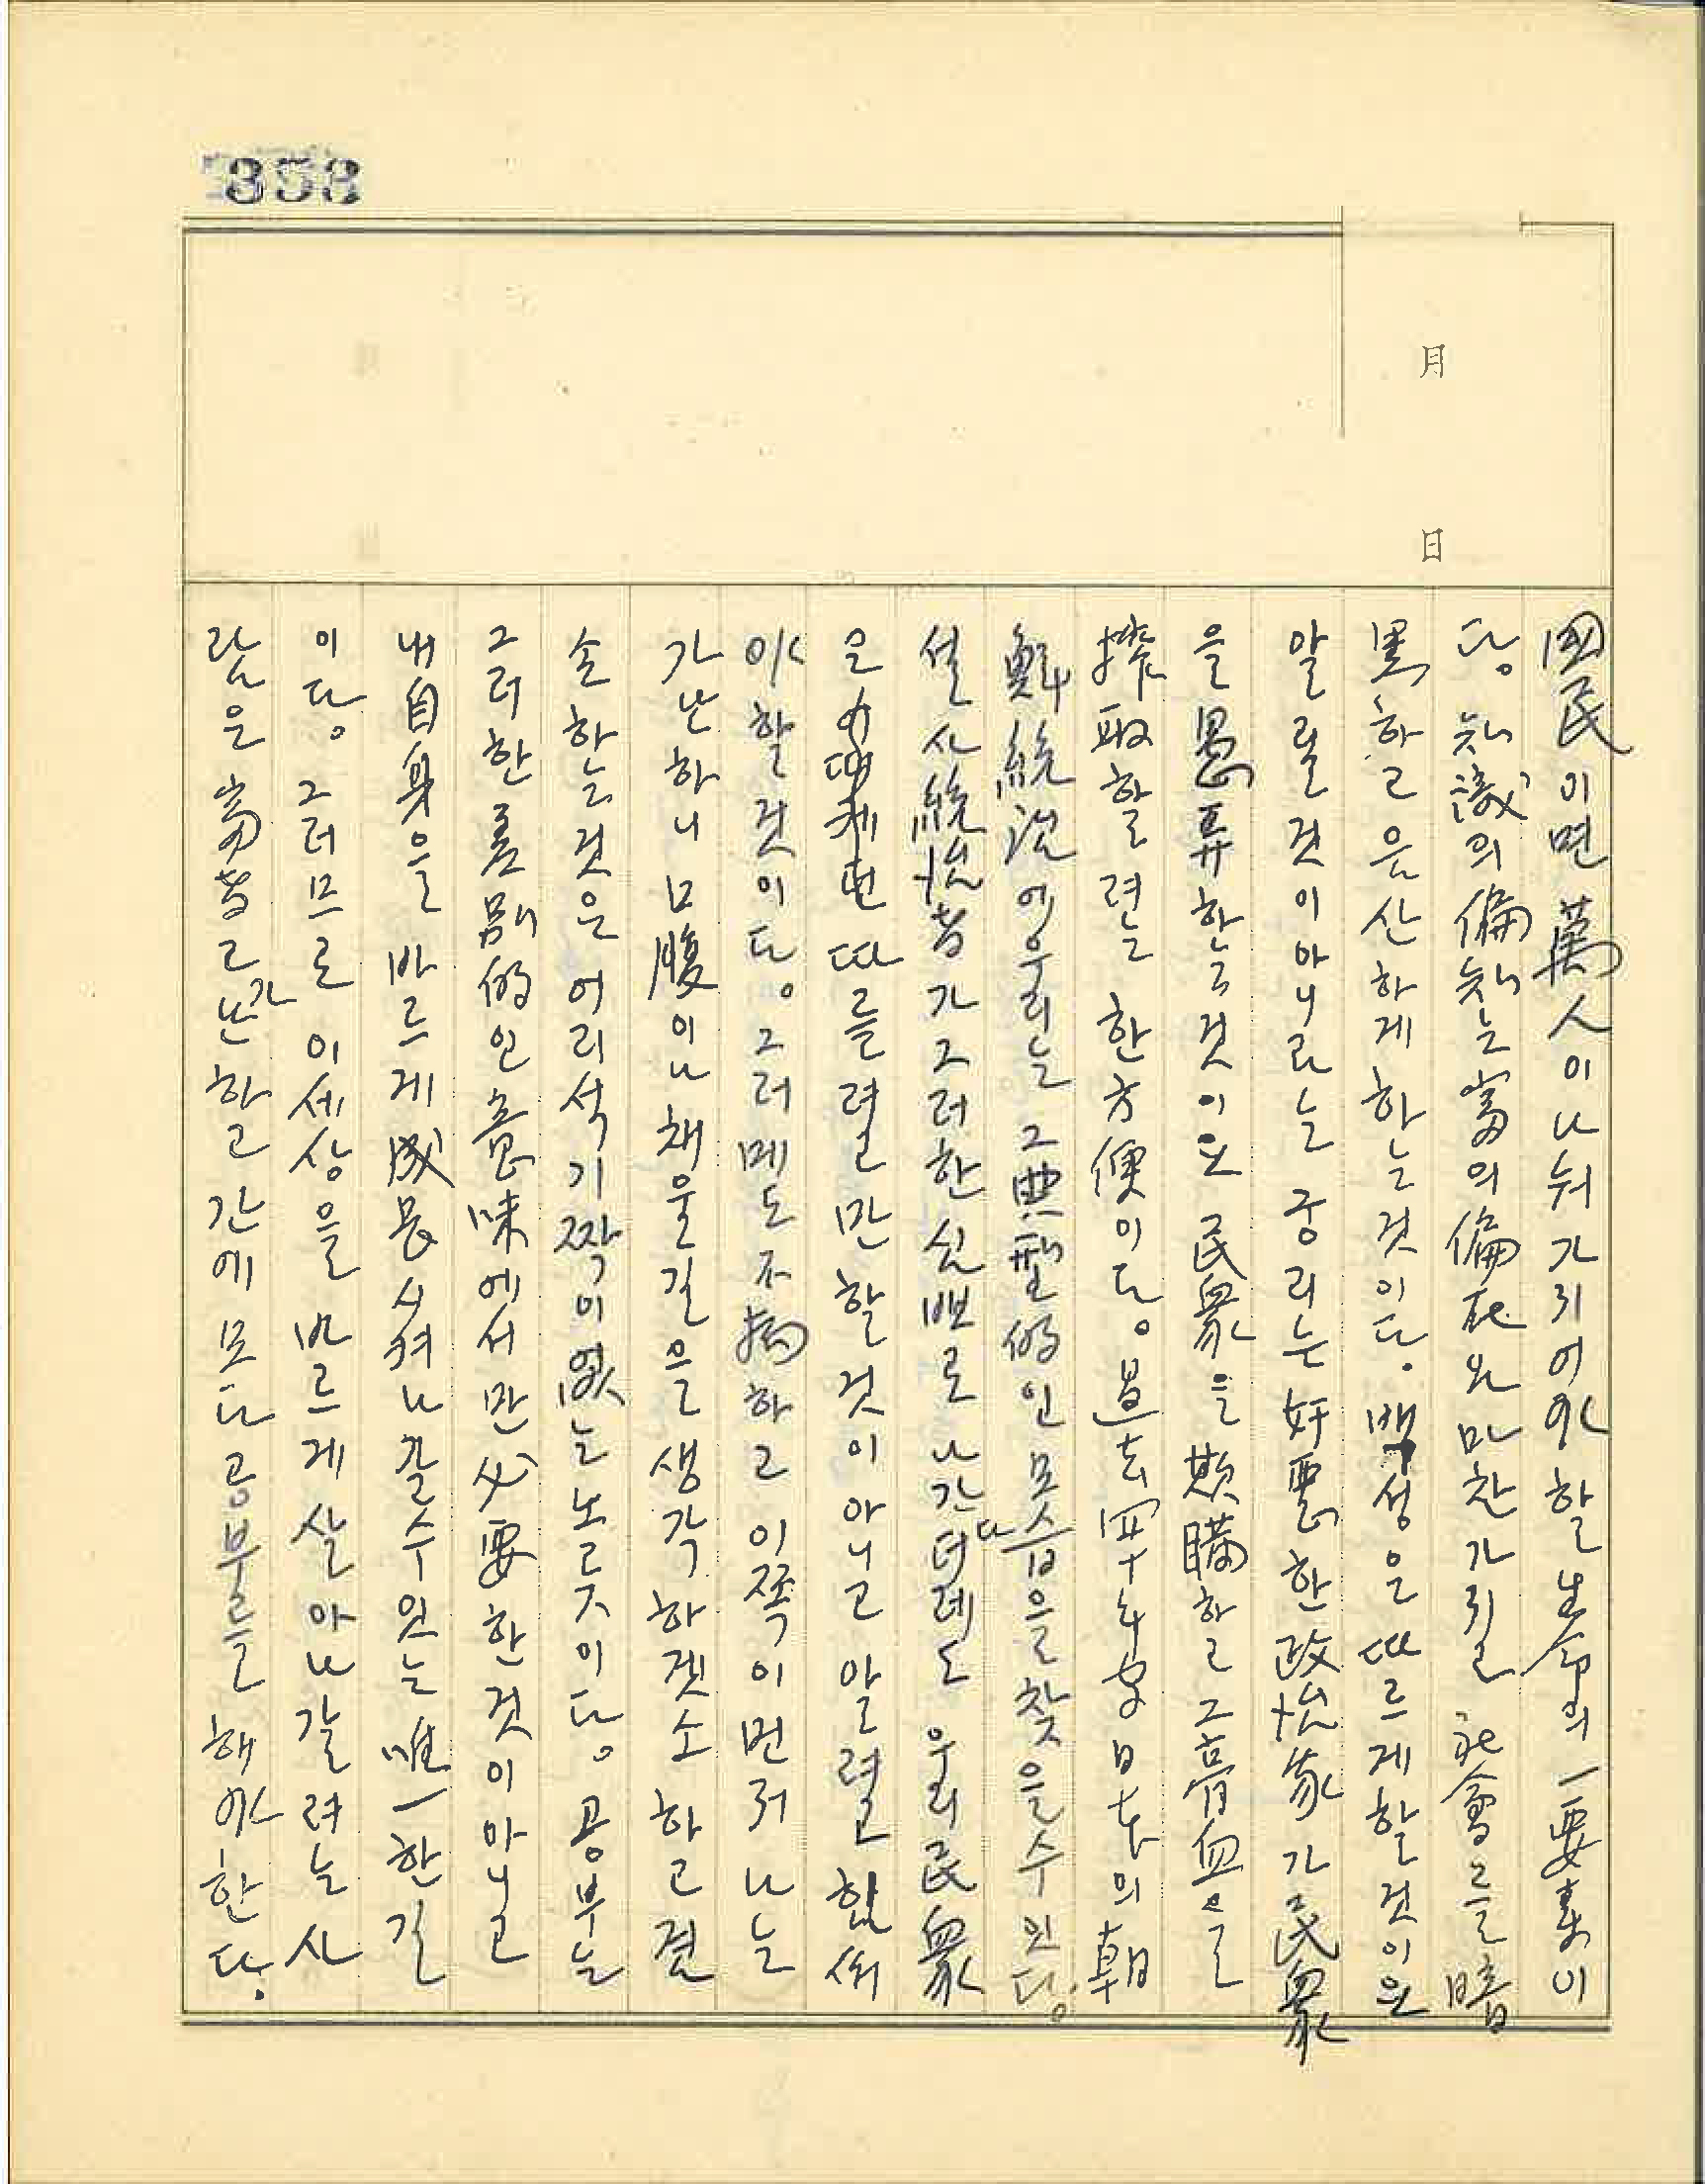 353
月
日
國民이면 萬人이 나눠가지어야 할 生命의 一要素이
다。知識의 偏知는 富의 偏在와 마찬가질 社會를 暗
黑하고 음산하게 하는 것이다. 백성은 따르게 할 것이요
알릴 것이 아니라는 공리는 奸惡한 政治家가 民衆
을 愚弄하는 것이요 民衆을 欺瞞하고 그 膏血을
搾取할려는 한 方便이다。過去 四十年 日本의 朝
鮮統治에 우리는 그 典型的인 모습을 찾을 수 있다。
설사 統治者가 그러한 심뽀로 나간다더레도 우리 民衆
은 따를려고만 할 것이 아니고 알려고 합써
야 할 것이다。그러메도 不拘하고 이쪽이 먼저 나는
가난하니 口腹이나 채울 길을 생각하겟소 하고 겸
손하는 것은 어리석기 짝이 없는 노릇이다。공부는
그러한 差別的인 意味에서만 必要한 것이 아니고
내 自身을 바르게 成長시켜 나갈 수 있는 唯一한 길
이다。그러므로 이 세상을 바르게 살아 나갈려는 사
람은 富者고 가난하고 간에 모다 공부를 해야 한다.